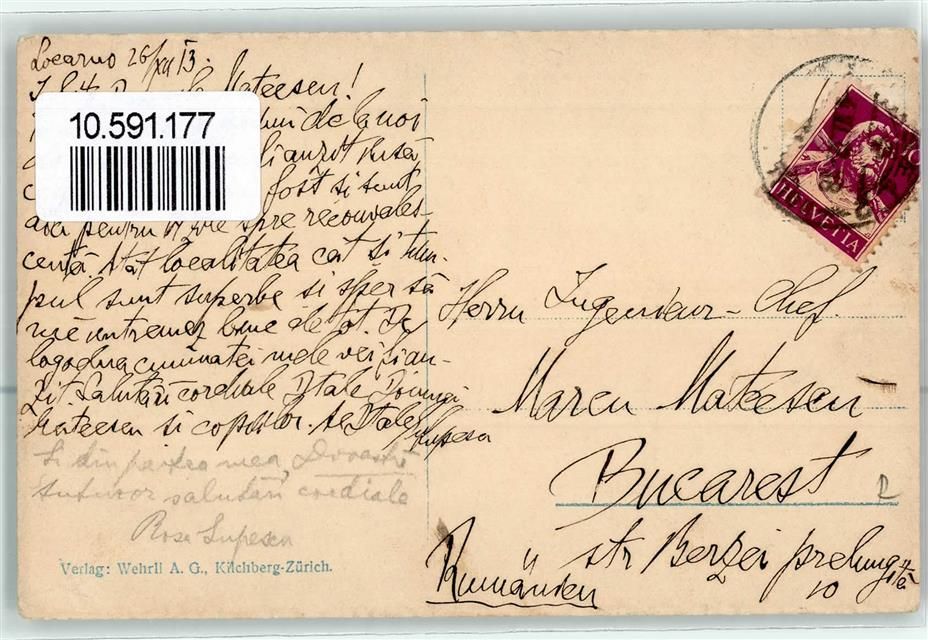 Locarno 26/XII 13.
Mateescu!
10.591.177
de la noi
auzit însă
fost si sunt
aici pentru spre reconvales-
cență. Atât localitatea cât și tim-
pul sunt superbe si sper să
mă întremez bine de tot. De
logodna cumnatei mele vei fi au-
zit. Salutări cordiale Dtale Doamnei
Mateescu si copiilor. al Dtale Lupescu
Si din partea mea, Dvoastră
tuturor salutări cordiale
Rosa Lupescu
Verlag: Wehrli A. G., Kilchberg-Zürich.
HELVETIA
Herrn Ingenieur-Chef.
Marcu Mateescu
Bucarest
str Berzei prelungită
10
Rumänien